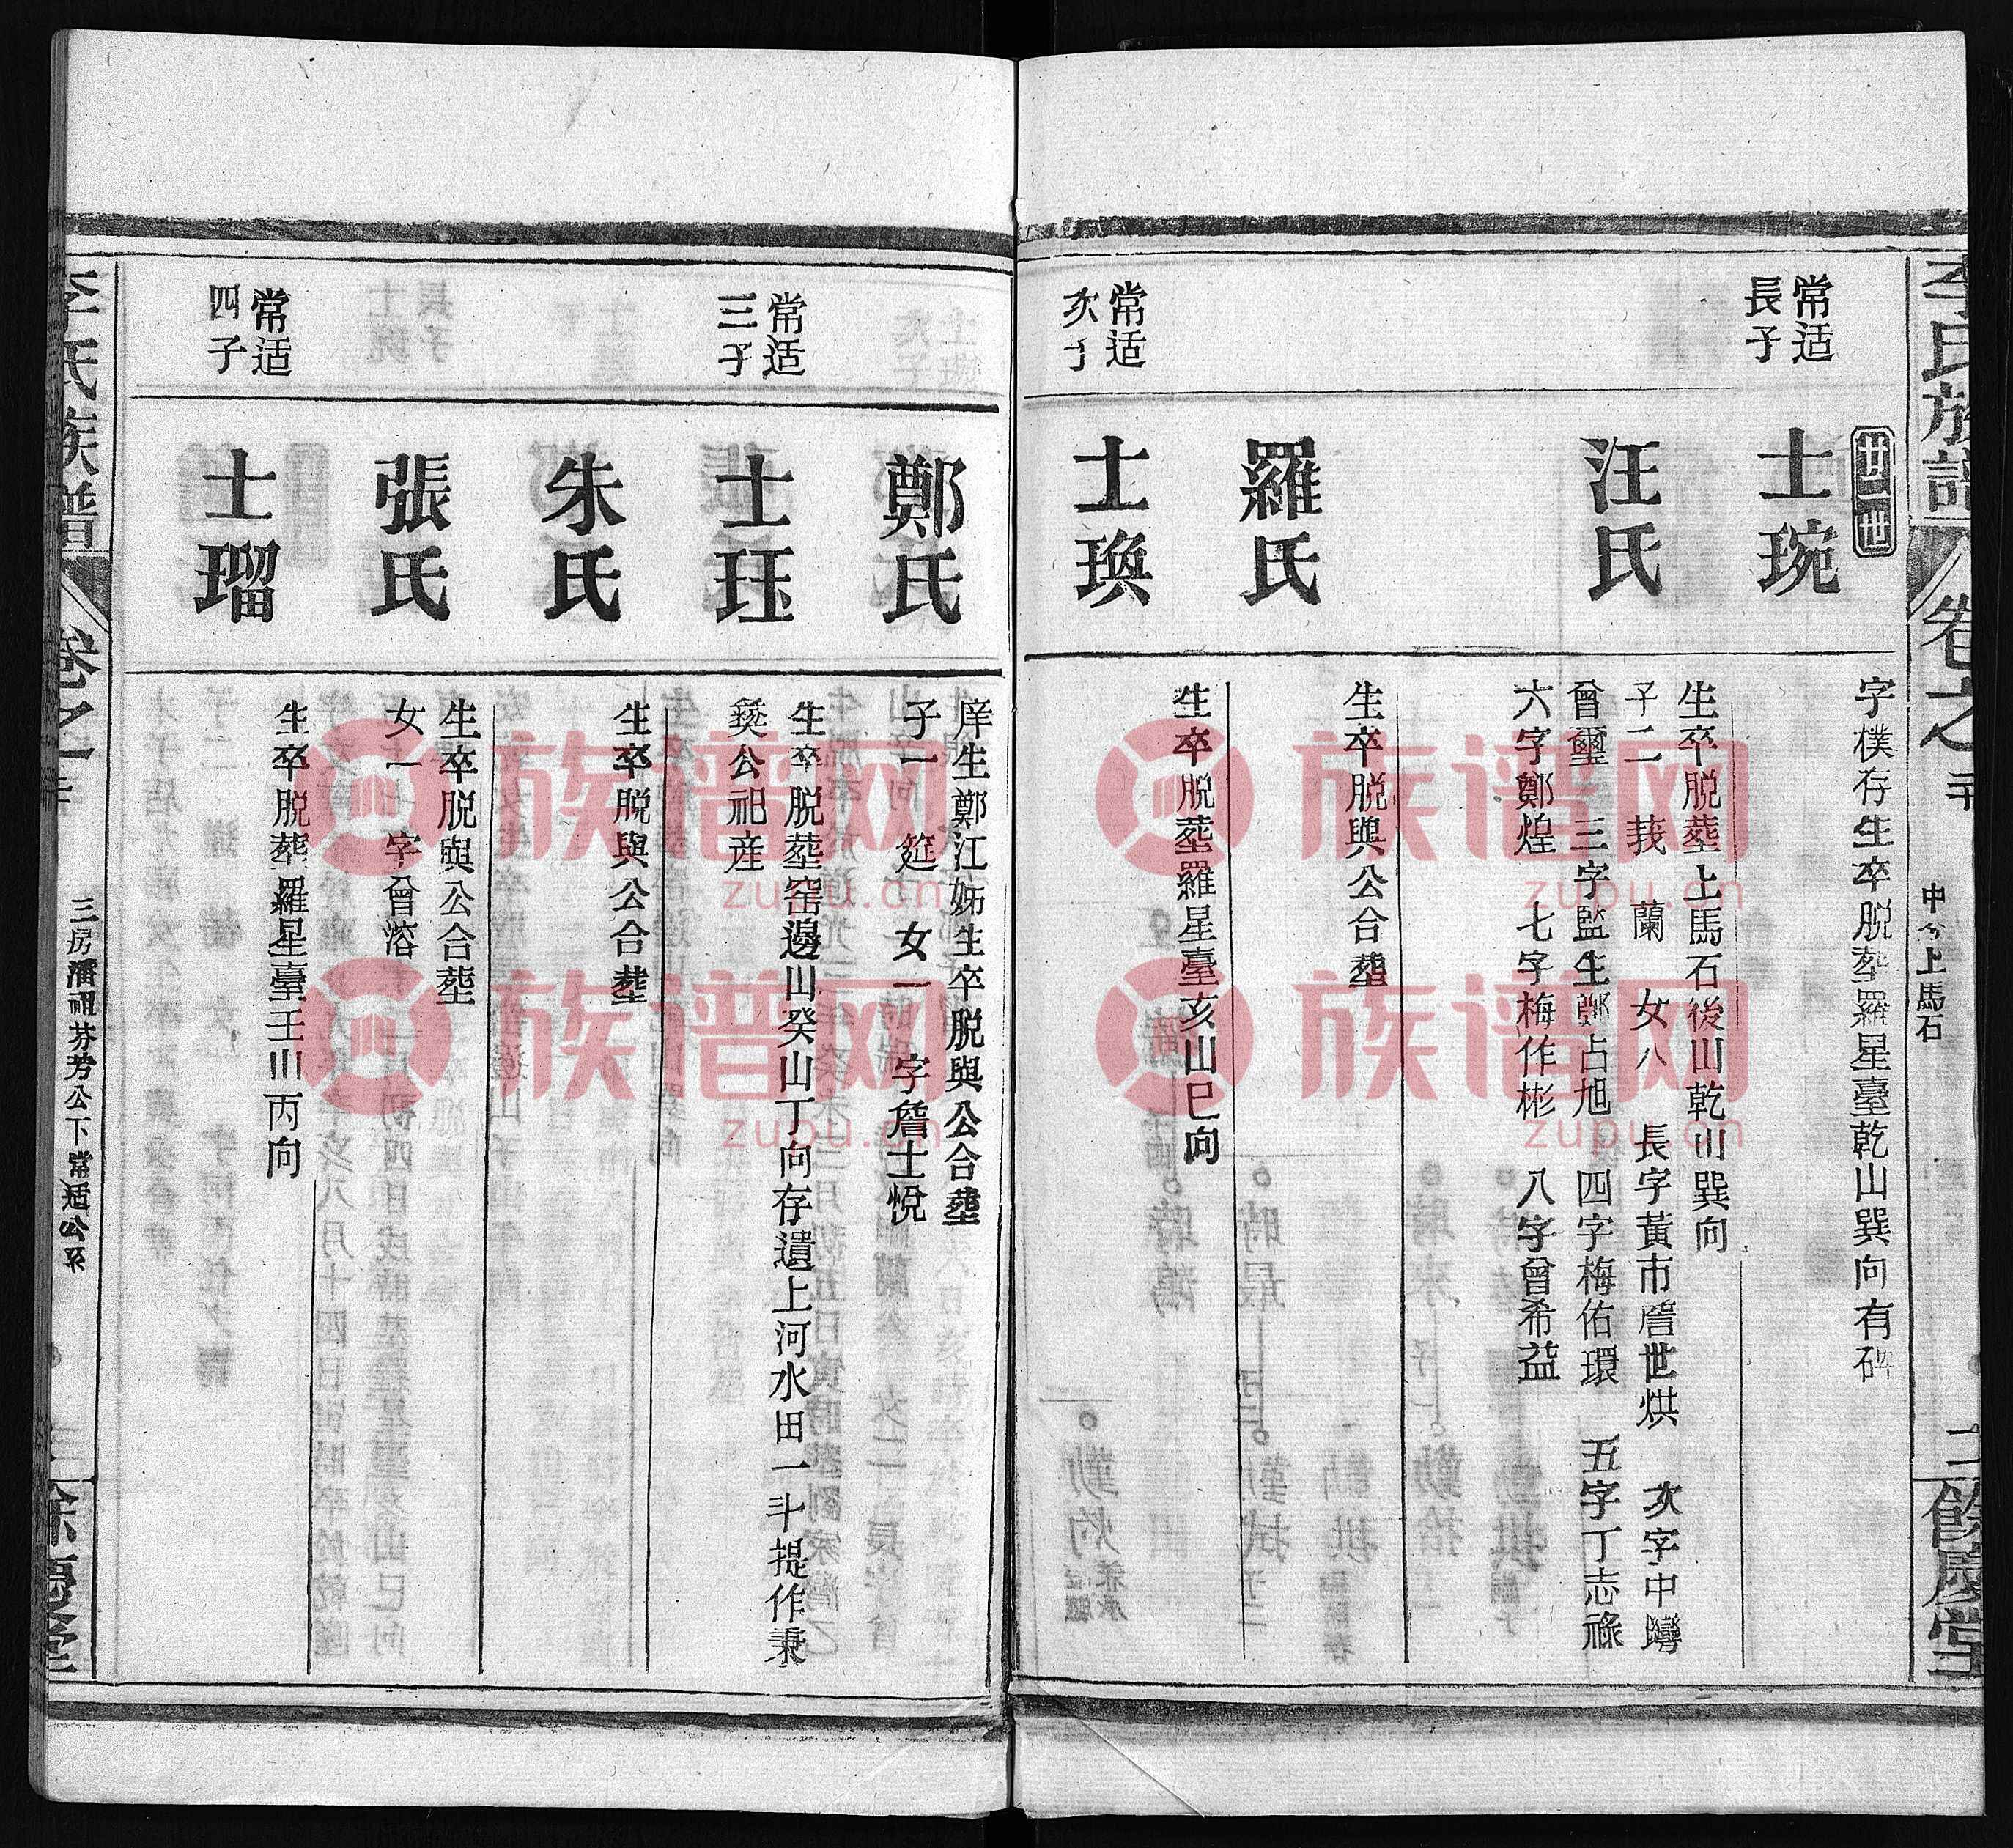 李氏族譜
卷之
中
上馬石
餘慶堂
世
常适
長子
士琬
字樸存生卒脫塟羅星臺乾山巽向有碑
汪氏
生卒脫塟上馬石後山乾山巽向
子二 莪 蘭 女八 長字黃市詹世烘 次字中
曾璽 三字監生鄭占旭 四字梅佑環 五字丁志祿
六字鄭煌 七字梅作彬 八字曾希益
羅氏
生卒脫與公合塟
常适
次子
士瑍
生卒脫塟羅星臺亥山巳向
鄭氏
庠生鄭江姊生卒脫與公合塟
子一 筵 女一 字詹士悅
常适
三子
士珏
生卒脫塟窑邊山癸山丁向存遺上河水田一斗提作秉
彜公祀産
朱氏
生卒脫與公合塟
張氏
生卒脫與公合塟
女一 字曾溶
常适
四子
士瑠
生卒脫塟羅星臺壬山丙向
李氏族譜
卷之
三房濳祖芬芳公下常适公系
三
餘慶堂
族谱网
zupu.cn
族谱网
zupu.cn
族谱网
zupu.cn
族谱网
zupu.cn